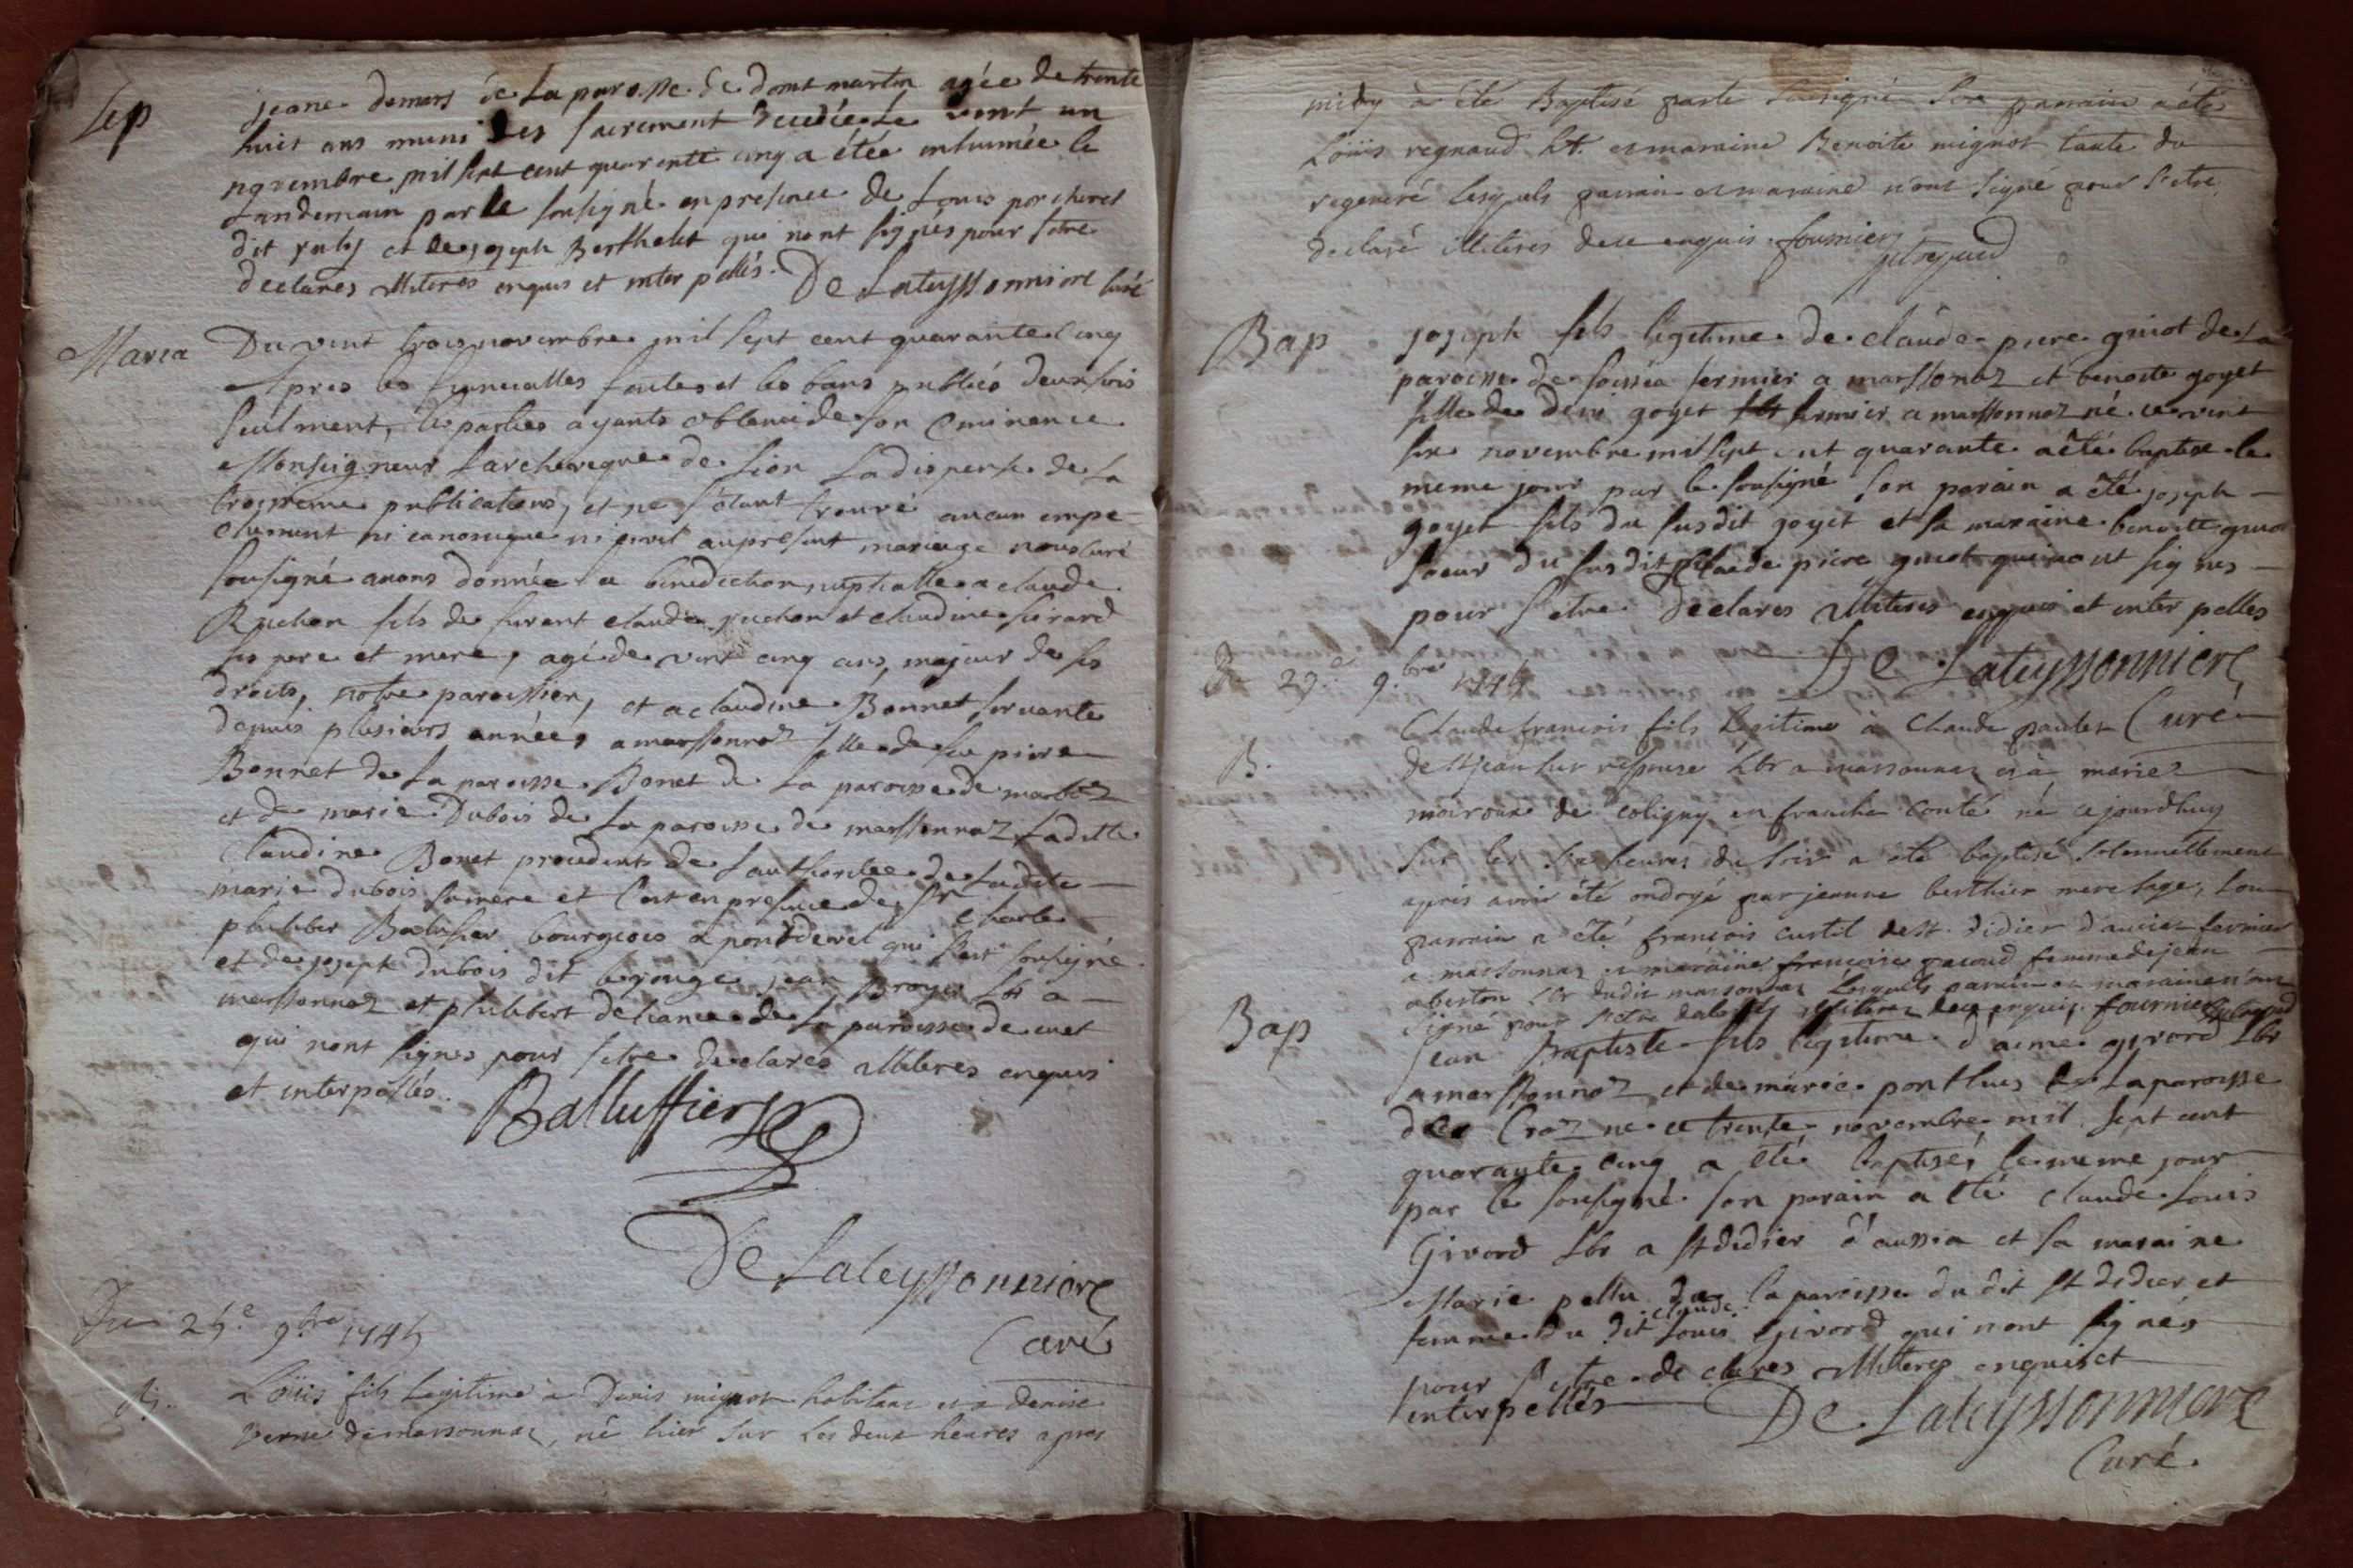 Sep
jeane demars de La paroisse de domt martin agée de trente
huit ans muni des sacrement decedée Le vint un
novembre mil sept cent quarente cinq a étée inhumée le
Landemain par le sousigné en presence de Louis porcheret
dit ruby et de joseph Berthelet qui nont signés pour setre
declares illiteres enquis et inter pellés. De Lateyssonniere curé
Maria
Du vint trois novembre mil sept cent quarante cinq
apres les fiancialles faites et les bans publiés deux fois
seulment, les parties ayants obtenu de son Eminence
Monseigneur Larcheveque de Lion La dispense de La
troisieme publications, et ne s'étant trouvé aucun empe-
chement ni canonique ni civil au present mariage nous curé
sousigné avons donnée la benediction nuptialle a claude
Ruchon fils de furent claude ruchon et claudine girard
ses pere et mere, agé de vint cinq ans, majeur de ses
droits, notre paroissien, et a claudine Bonnet servante
depuis plusieurs années a marssonnaz fille de fu piere
Bonnet de La paroisse Bonet de La paroisse de marboz
et de marie Dubois de La paroisse de marssonnaz Ladite
Claudine Bonet procedente de Lauthoritee de Ladite
marie dubois sa mere et Cest en presence de Sr charle
philiber Balufier bourgeois a pontdevel qui sest sousigné
et de joseph dubois dit le rouge, jean Broyer Lbr a
marssonnaz et philibert deliance de La paroisse de cuet
qui nont signes pour setre declarés illiteres enquis
et interpellés.
Balluffier
De Lateyssonniere
Curé
Du 25.e 9.bre 1745
B.
Loüis fils Legitime à Denis mignot habitant et a denise
verne de marsonnaz, né hier sur Les deux heures apres
midy à été Baptisé par le sousigné Son parrain a été
Loüis regnaud ht. et maraine Benoite mignot tante du
regeneré Lesquels parrain et maraine n'ont signé pour s'etre
declaré illiteres de ce enquis. fournier
Bap
joseph fils legitime de claude piere guiot de La
paroisse de foissia fermier a marssonaz et benoite goyet
fille de deni goyet fermier a marssonnaz né ce vint
six novembre mil sept cent quarante a été baptise le
meme jour par le sousigné son parain a été joseph
goyet fils du susdit goyet et sa maraine benoite guiot
soeur du susdit claude piere guiot qui nont signes
pour setre declares illiteres enquis et inter pelles
De Lateyssonniere
Curé
Du 29.e 9.bre 1745
B.
Claude francois fils Legitime à Claude paulet
de St jean sur reissouse Lbr a marsonnaz et à marie
moiroux de coligny en franche Conté né ce jourdhuy
sur les six heures du soir a été baptisé solennellement
apres avoir été ondoyé par jeanne berthier mere sage, son
parrain a été francois curtil de St. didier d'aussia fermier
a marsonnaz et maraine francoise pacoud femme de jean
abeston Lbr dudit marsonnaz Lesquels parrain et maraine n'ont
signé pour s'etre declarés illiteres de ce enquis. fournier
Bap
jean Baptiste fils legitime d'aime girord Lbr
a marssonnaz et de marie ponthus de La paroisse
de Craz ne ce trente novembre mil sept cent
quarante cinq a été baptisé le meme jour
par le sousigné son parain a été claude Louis
Girord Lbr a St didier d'aussia et sa maraine
Marie pellu de la paroisse du dit St didier et
femme du dit claude Louis Girord qui nont signés
pour setre declares illiteres enquis et
interpellés De Lateyssonniere
Curé.